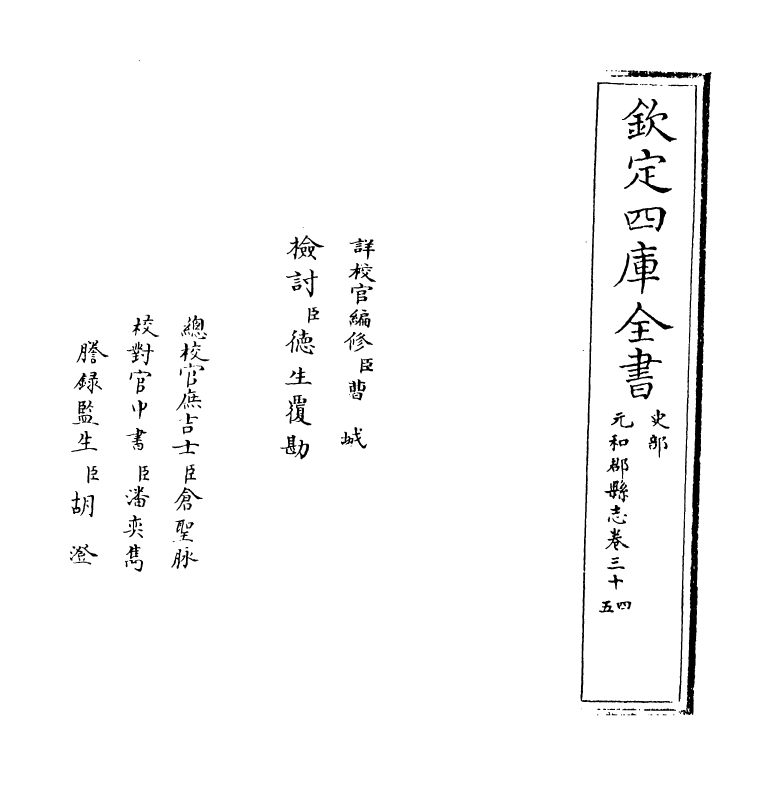 欽定四庫全書
史部
元和郡縣志卷三十四
五
詳校官編修臣曹城
檢討臣德生覆勘
總校官庶吉士臣倉聖脉
校對官中書臣潘奕雋
謄録監生臣胡澄